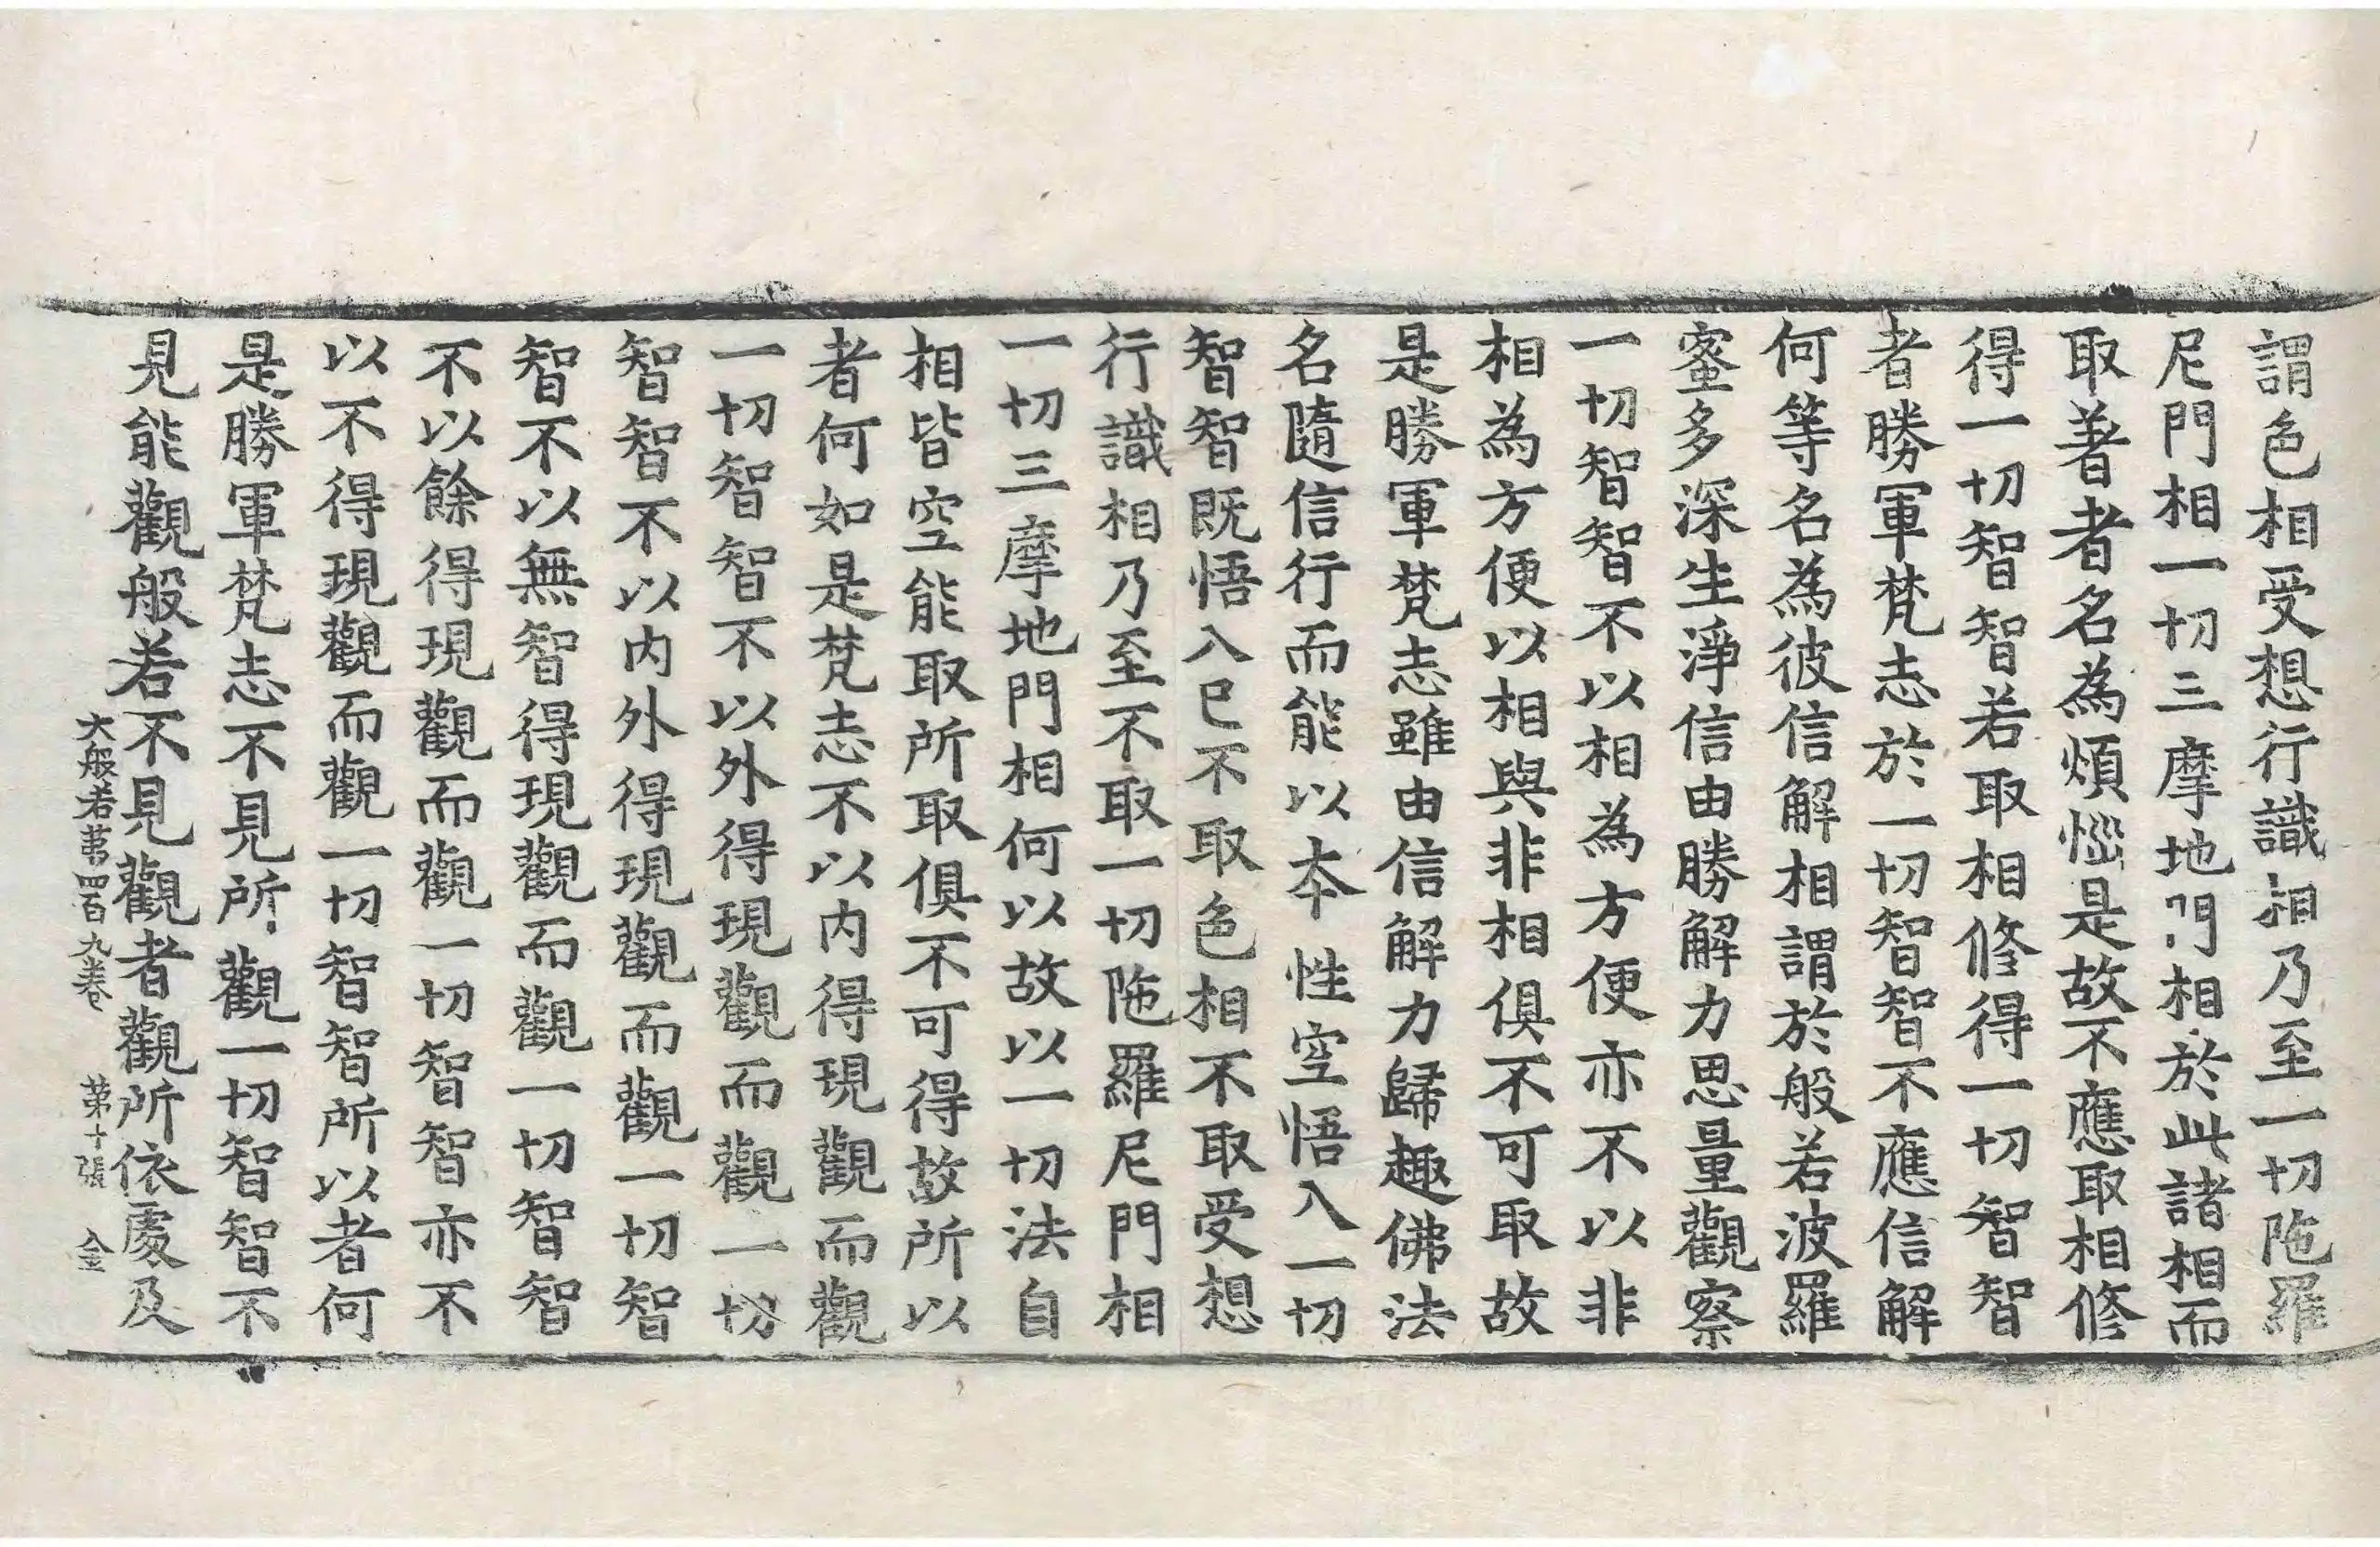 謂色相受想行識相乃至一切陁羅
尼門相一切三摩地門相於此諸相而
取著者名為煩惱是故不應取相修
得一切智智若取相修得一切智智
者勝軍梵志於一切智智不應信解
何等名為彼信解相謂於般若波羅
蜜多深生淨信由勝解力思量觀察
一切智智不以相為方便亦不以非
相為方便以相與非相俱不可取故
是勝軍梵志雖由信解力歸趣佛法
名隨信行而能以本性空悟入一切
智智既悟入已不取色相不取受想
行識相乃至不取一切陁羅尼門相
一切三摩地門相何以故以一切法自
相皆空能取所取俱不可得故所以
者何如是梵志不以内得現觀而觀
一切智智不以外得現觀而觀一切
智智不以内外得現觀而觀一切智
智不以無智得現觀而觀一切智智
不以餘得現觀而觀一切智智亦不
以不得現觀而觀一切智智所以者何
是勝軍梵志不見所觀一切智智不
見能觀般若不見觀者觀所依處及
大般若苐四百九卷 苐十張 金